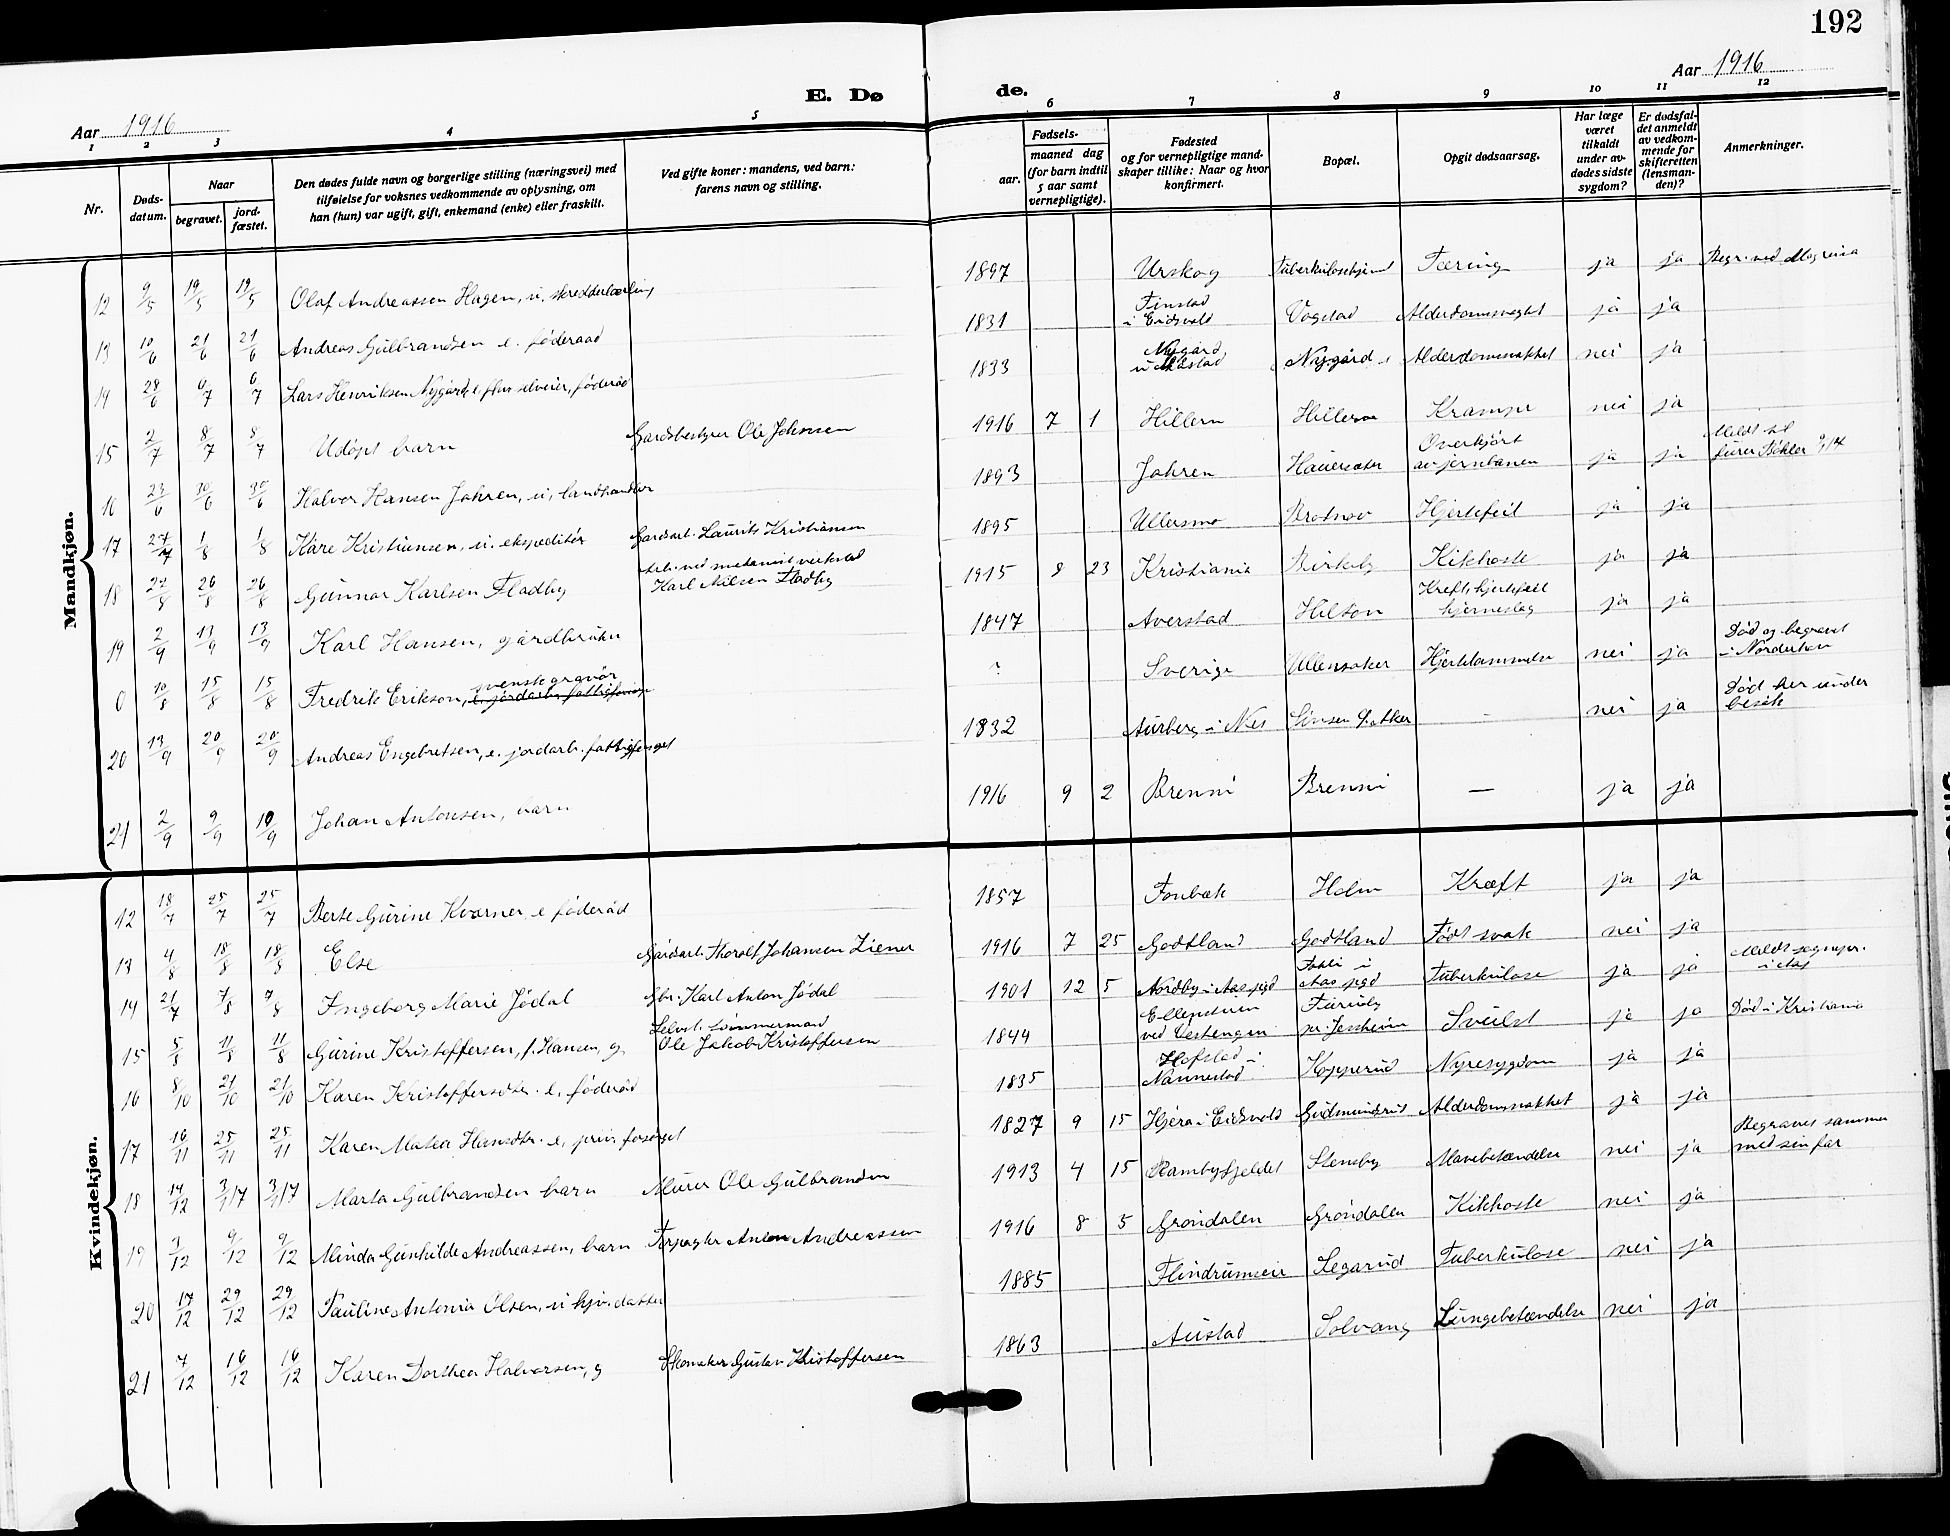 192
Aar 1916
Aar 1916
E. Dø de.
1 2 3 4 5 6 7 8 9 10 11 12
Nr.
Døds-datum.
Naar
begravet. jord-fæstet.
Den dødes fulde navn og borgerlige stilling (næringsvei) med
tilføielse for voksnes vedkommende av oplysning, om
han (hun) var ugift, gift, enkemand (enke) eller fraskilt.
Ved gifte koner: mandens, ved barn:
farens navn og stilling.
Fødsels-
aar. maaned dag
(for barn indtil
5 aar samt
vernepligtige).
Fødested
og for vernepligtige mand-
skaper tillike: Naar og hvor
konfirmert.
Bopæl.
Opgit dødsaarsag.
Har læge
været
tilkaldt
under av-
dødes sidste
sygdom?
Er dødsfal-
det anmeldt
av vedkom-
mende for
skifteretten
(lensman-
den)?
Anmerkninger.
Mandkjøn.
12 9/5 19/5 19/5 Olaf Andreassen Hagen, u, skredderlærling 1897 Urskog Tuberkulosehjem Tæring ja ja Begr. ved Mogreina
13 10/6 21/6 21/6 Andreas Gulbrandsen e. føderaad 1831 Finstad i Eidsvold Vogstad ja ja
14 28/6 6/7 6/7 Lars Henriksen Nygård, e, selveier, føderåd 1833 Nygård Nygård Alderdomssvakhet nei ja
15 2/7 8/7 8/7 Udøpt barn Gardsbestyrer Ole Johnsen 1916 7 1 Hillern Hillern Krampe nei ja
16 23/6 30/6 30/6 Halvor Hansen Jahren, u, landhandler 1893 Jahren Overkjørt av jernbanen ja ja Meldt til
17 27/7 1/8 1/8 Kåre Kristiansen, u. ekspeditør Gardsarb. Laurits Kristiansen 1895 Ullersmo Brotnov Hjertefeil ja ja
18 22/8 26/8 26/8 Gunnar Karlsen Fladby Arb. ved mekanisk verksted Karl Nilsen Fladby 1915 8 23 Kristiania Birkeby Kikhoste ja ja
19 2/9 13/9 13/9 Karl Hansen, gårdbruker 1847 Averstad Hilton Kreft, hjertefeil hjerneslag ja ja
0 10/8 15/8 15/8 Fredrik Erikson, svensk gravør ? Sverige Ullensaker Hjertelammelse nei ja Død og begravet i Norderhov
20 13/9 20/9 20/9 Andreas Engebretsen, e. jordarb. fattigforsørget 1832 Aurberg i Nes Sinsen Ø. Aker - nei ja Død her under besøk
21 2/9 9/9 10/9 Johan Antonsen, barn 1916 9 2 Brenni Brenni — ja ja
Kvindekjøn.
12 18/7 25/7 25/7 Berte Gurine Kværner e føderåd 1857 Fonbæk Holm Kræft ja ja
13 4/8 18/8 18/8 Else Gårdsarb. Thorolf Johansen Ziener 1916 7 25 Godtland Godtland Født svak nei ja
14 21/7 7/8 7/8 Ingeborg Marie Jødal Gbr. Karl Anton Jødal 1901 12 5 Nordby i Aas pgd i Aas pgd Tuberkulose ja ja Meldt sognepr. i Aas
15 5/8 11/8 11/8 Gurine Kristoffersen, f. Hansen, g. Selvst. tømmermand Ole Jakob Kristoffersen 1844 ved Vestengen Furuby pr. Jessheim Svulst ja ja Død i Kristiania
16 8/10 21/10 21/10 Karen Kristoffersdtr. e, føderåd 1835 Hofstad i Nannestad Kopperud Nyresygdom ja ja
17 16/11 25/11 25/11 Karen Matea Hansdtr. e, priv. forsørget 1827 9 15 Hjera i Eidsvold Gudmundrud Alderdomssvakhet ja ja
18 14/12 3/1 17 3/1 17 Marta Gulbrandsen barn Murer Ole Gulbrandsen 1913 4 15 Rambyfjeldet Stensby Mavebetændelse nei ja Begraves sammen med sin far
19 3/12 9/12 9/12 Minda Gunhilde Andreassen, barn Forpagter Anton Andreassen 1916 8 5 Grøndalen Grøndalen Kikhoste nei ja
20 17/12 29/12 29/12 Pauline Antonia Olsen, u hjv. datter 1885 Flindrumseie Segarud Tuberkulose nei ja
21 7/12 16/12 16/12 Karen Dorthea Halvorsen, g Skomaker Gustav Kristoffersen 1863 Austad Solvang Lungebetændelse nei ja